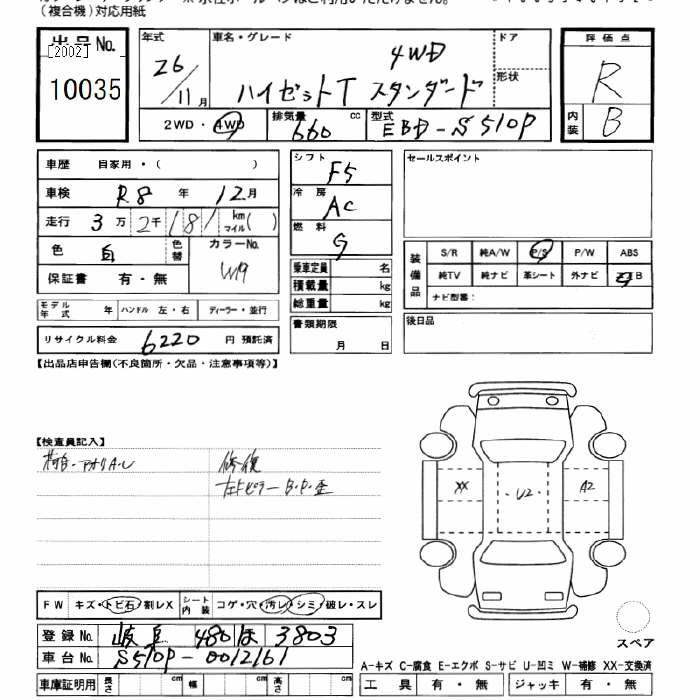 (複合機)対応用紙
出品No. [2002] 10035
年式 26/11月
車名・グレード 4WD
ハイゼットT スタンダード
ドア
形状
2WD・4WD 排気量 660 cc 型式 EBD-S510P
評価点 R
内装 B
車歴 自家用・( )
車検 R8年 12月
走行 3万2千181 km マイル( )
色 白 色替 カラーNo. W19
保証書 有・無
モデル年式 年 ハンドル 左・右 ディーラー・並行
リサイクル料金 6220 円 預託済
シフト F5
冷房 AC
燃料 G
乗車定員 名
積載量 kg
総重量 kg
書類期限
月 日
セールスポイント
装備品
S/R 純A/W P/S P/W ABS
純TV 純ナビ 革シート 外ナビ エアB
ナビ型番:
後日品
【出品店申告欄(不良箇所・欠品・注意事項等)】
【検査員記入】
荷台・アオリA・U
修復
左Fピラー B・P・歪
XX U2 A2
FW キズ・トビ石・割レX シート内装 コゲ・穴・汚レ・シミ・破レ・スレ
登録No. 岐阜 480 ほ 3803
車台No. S510P-0012161
車庫証明用 長さ cm 幅 cm 高さ cm
スペア
A-キズ C-腐食 E-エクボ S-サビ U-凹ミ W-補修 XX-交換済
工具 有・無 ジャッキ 有・無